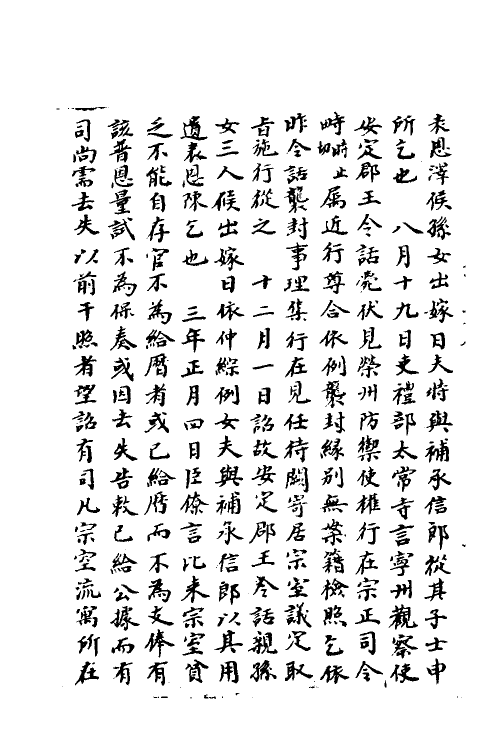 表恩澤候孫女出嫁日夫將與補承信郎從其子士申
所乞也　八月十九日吏禮部太常寺言寧州觀察使
安定郡王令話薨伏見榮州防禦使權行在宗正司令
時時切止屬近行尊合依例襲封緣別無案籍檢照乞依
昨令話襲封事理集行在見任待闕寄居宗室議定取
旨施行從之　十二月一日詔故安定郡王令話親孫
女三人候出嫁日依仲綜例女夫與補承信郎以其用
遺表恩陳乞也　三年正月四日臣僚言比来宗室貧
乏不能自存官不為給曆者或已給曆而不為支俸有
該普恩量試不為保奏或因去失告敕已給公據而有
司尚需去失以前干照者望詔有司凡宗室流寓所在